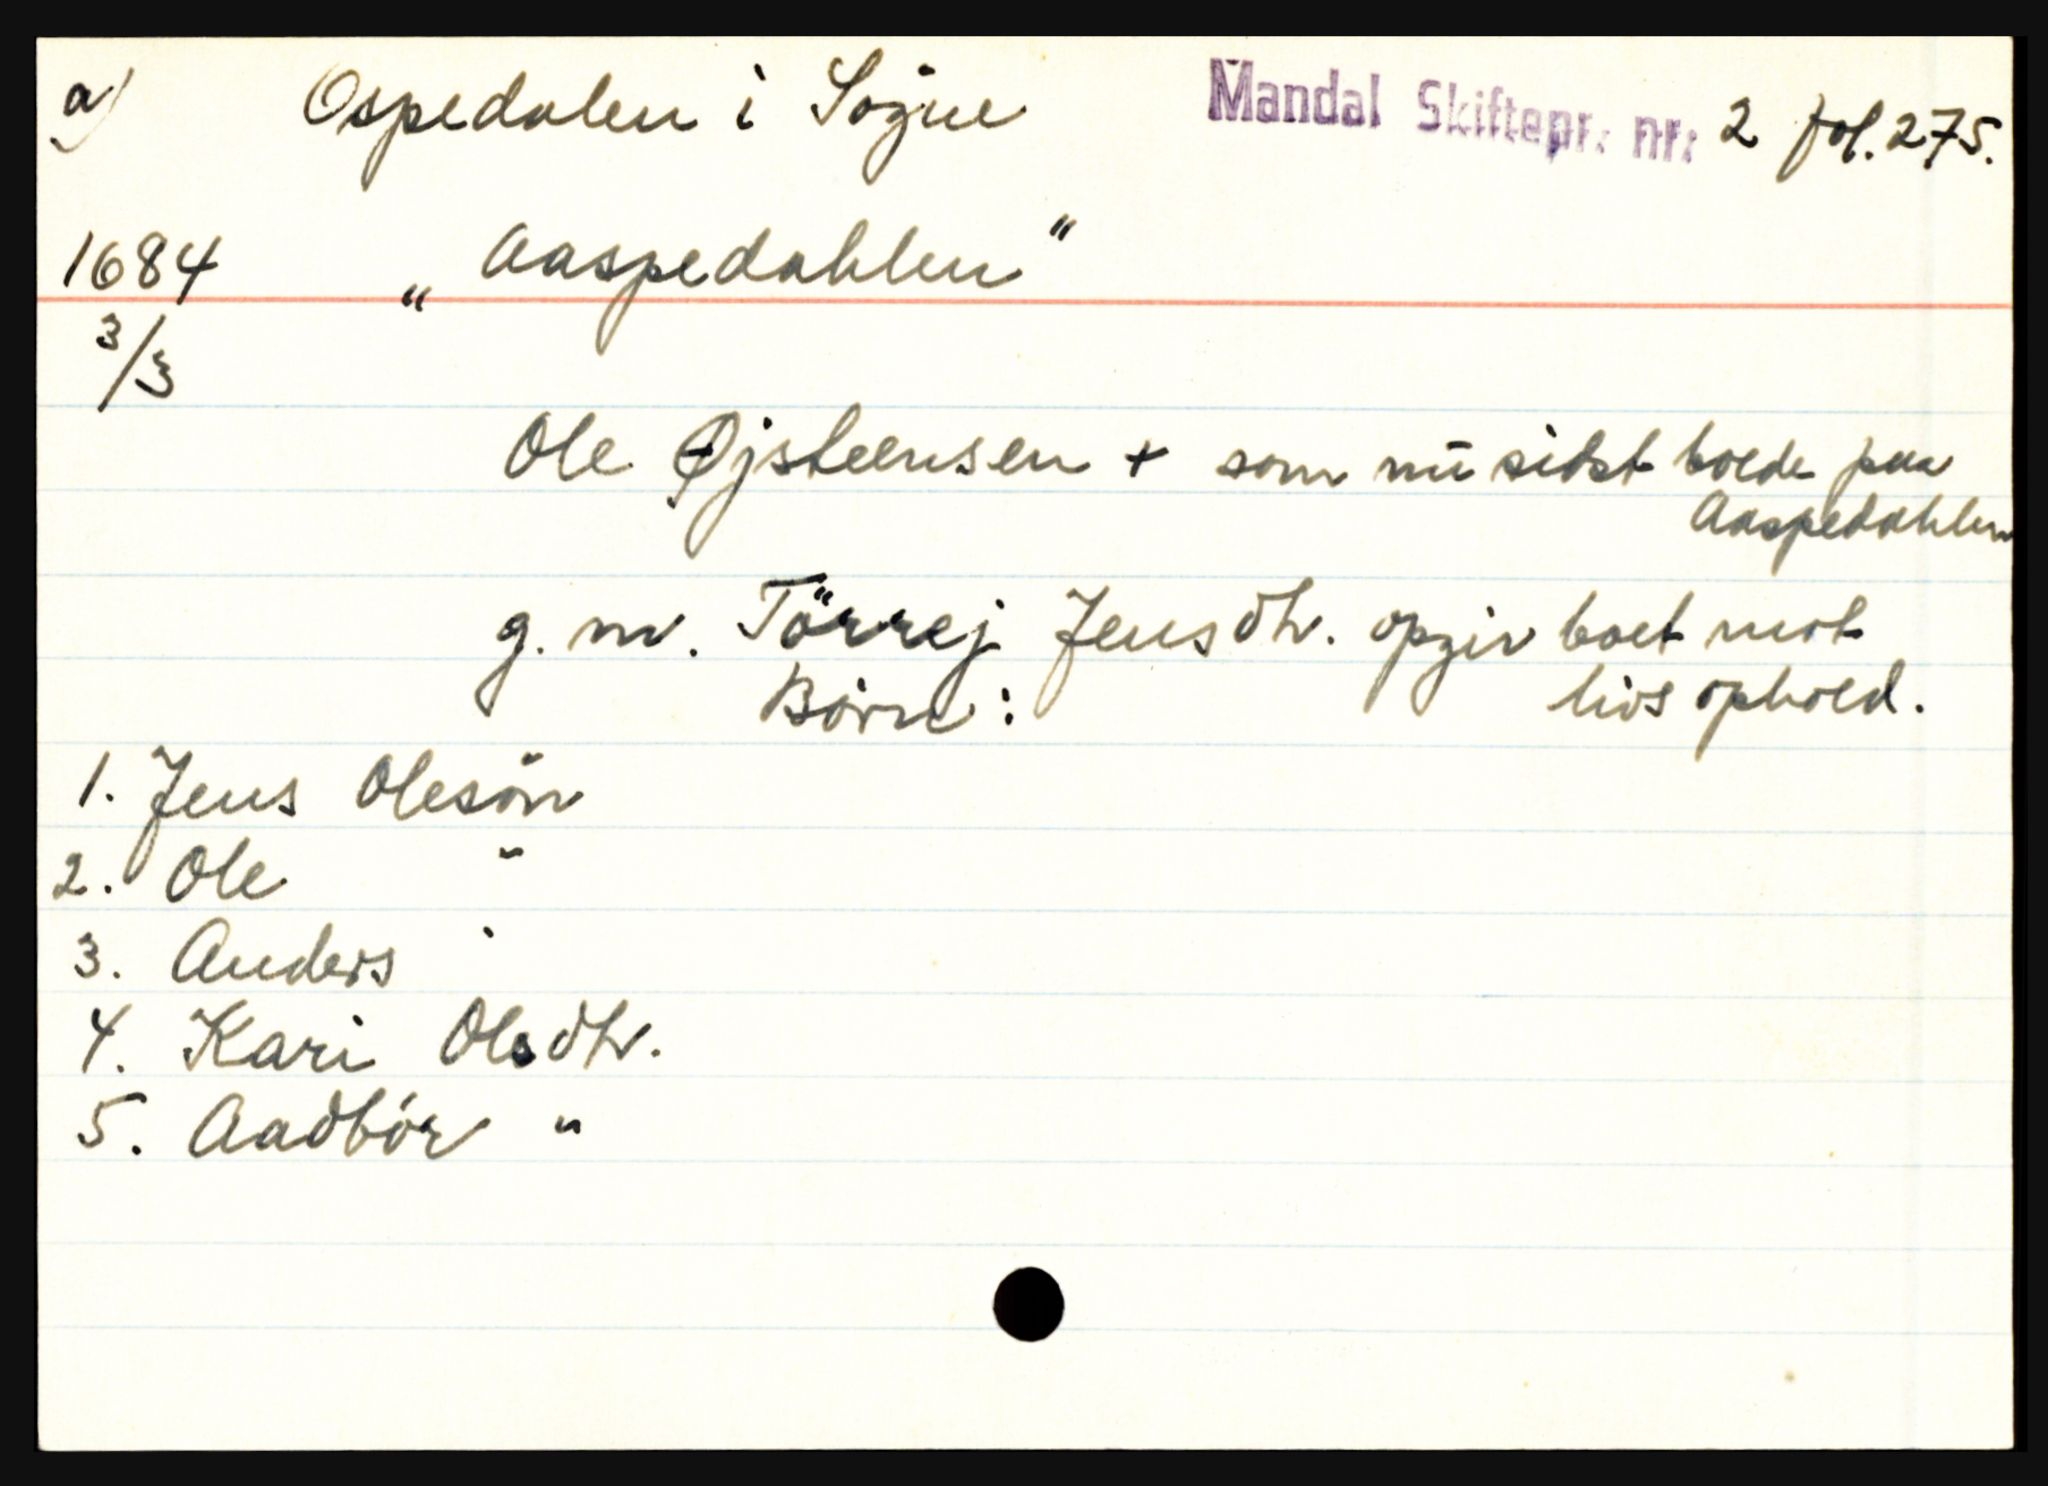 a) Ospedalen i Søgne Mandal Skiftepr. nr: 2 fol. 275.
1684 „ Aaspedahlen “
3/3
Ole Øjsteensen + som nū sidst boede paa
Aaspedahlen
g. m. Törrej Jensdtr. opgir boet mot
Børn: livsophold.
1. Jens Olesön
2. Ole "
3. Anders "
4. Kari Olsdtr.
5. Aadbór "